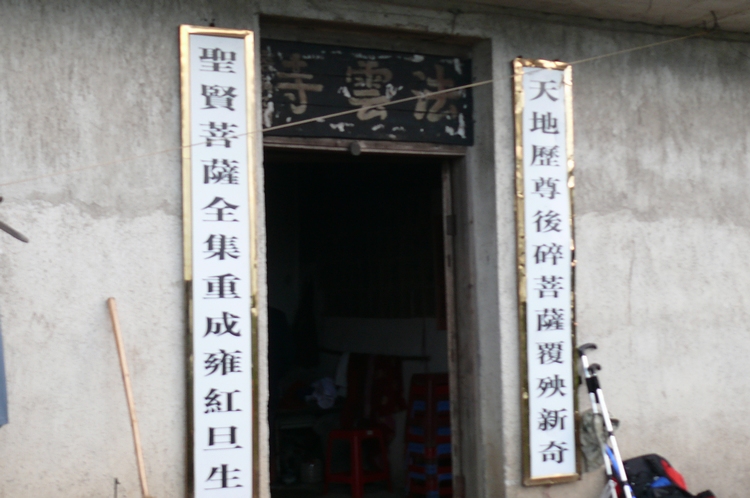 法雲寺
天地歷尊後碎菩薩覆殃新奇
聖賢菩薩全集重成雍紅旦生